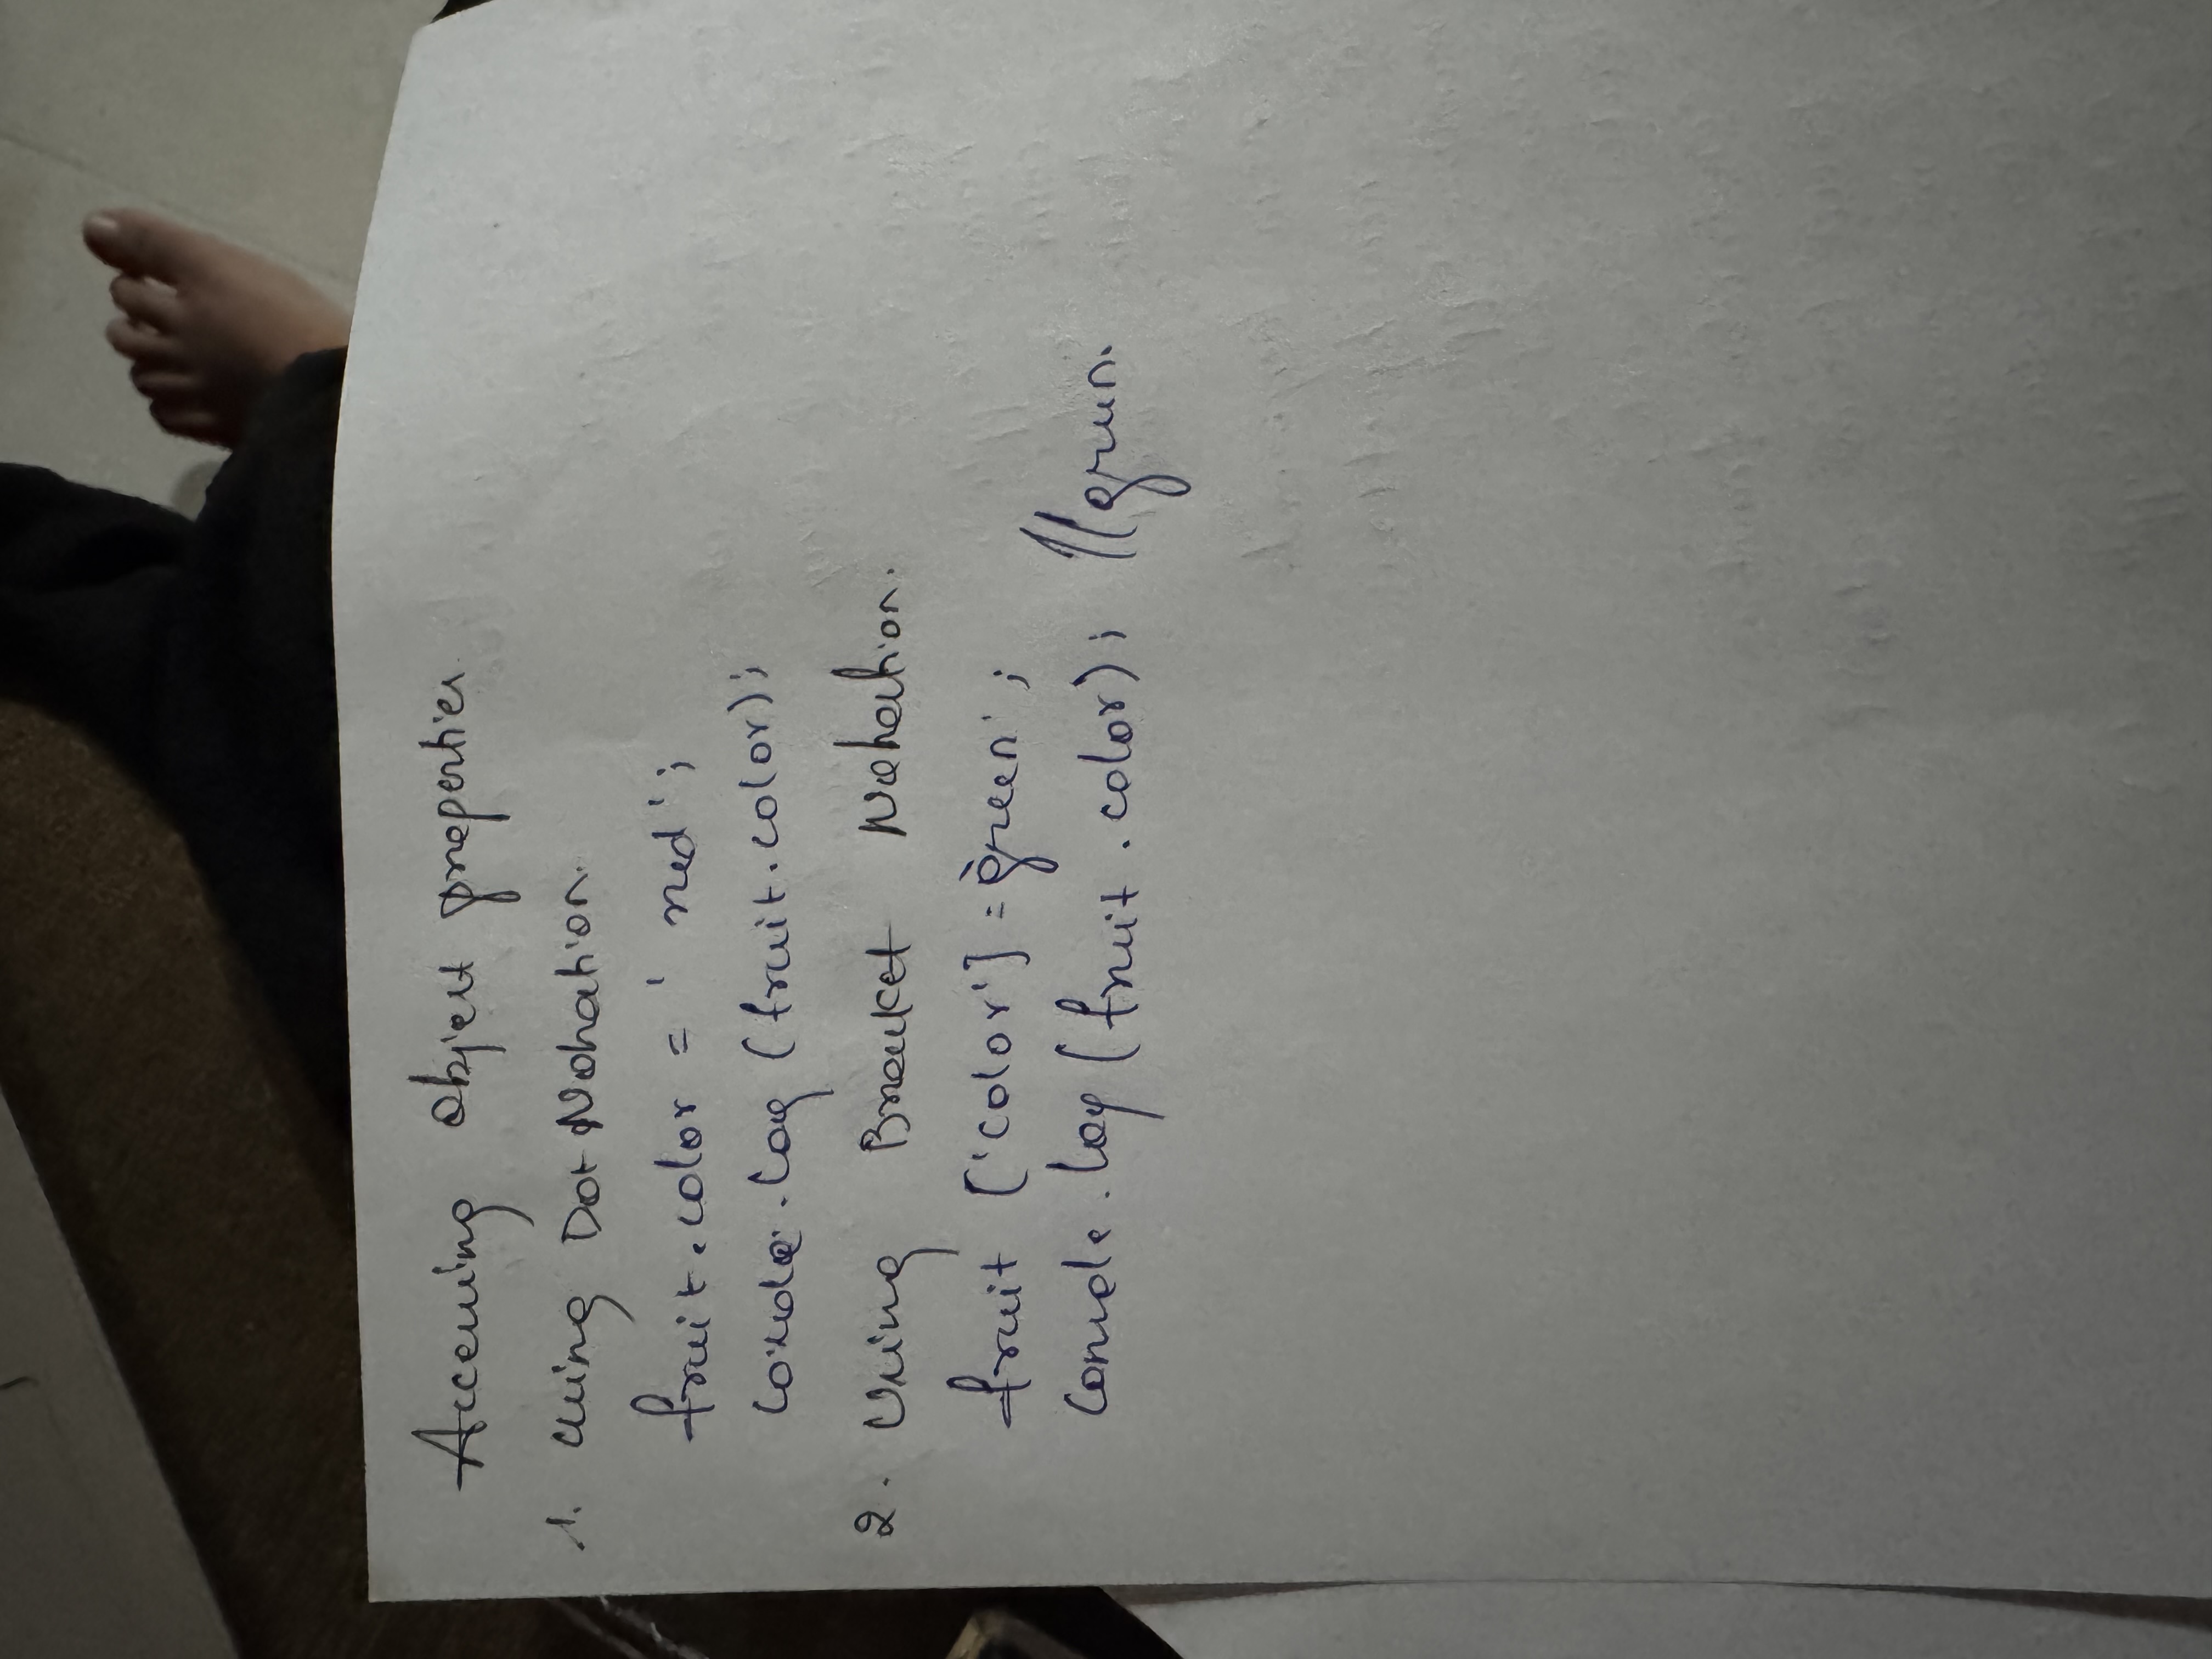 Accessing Object properties
1. Using Dot Notation.
fruit.color = ' red ';
console.log (fruit.color);
2. Using Bracket Notation.
fruit ['color'] = 'green' ;
console.log (fruit.color); //green.